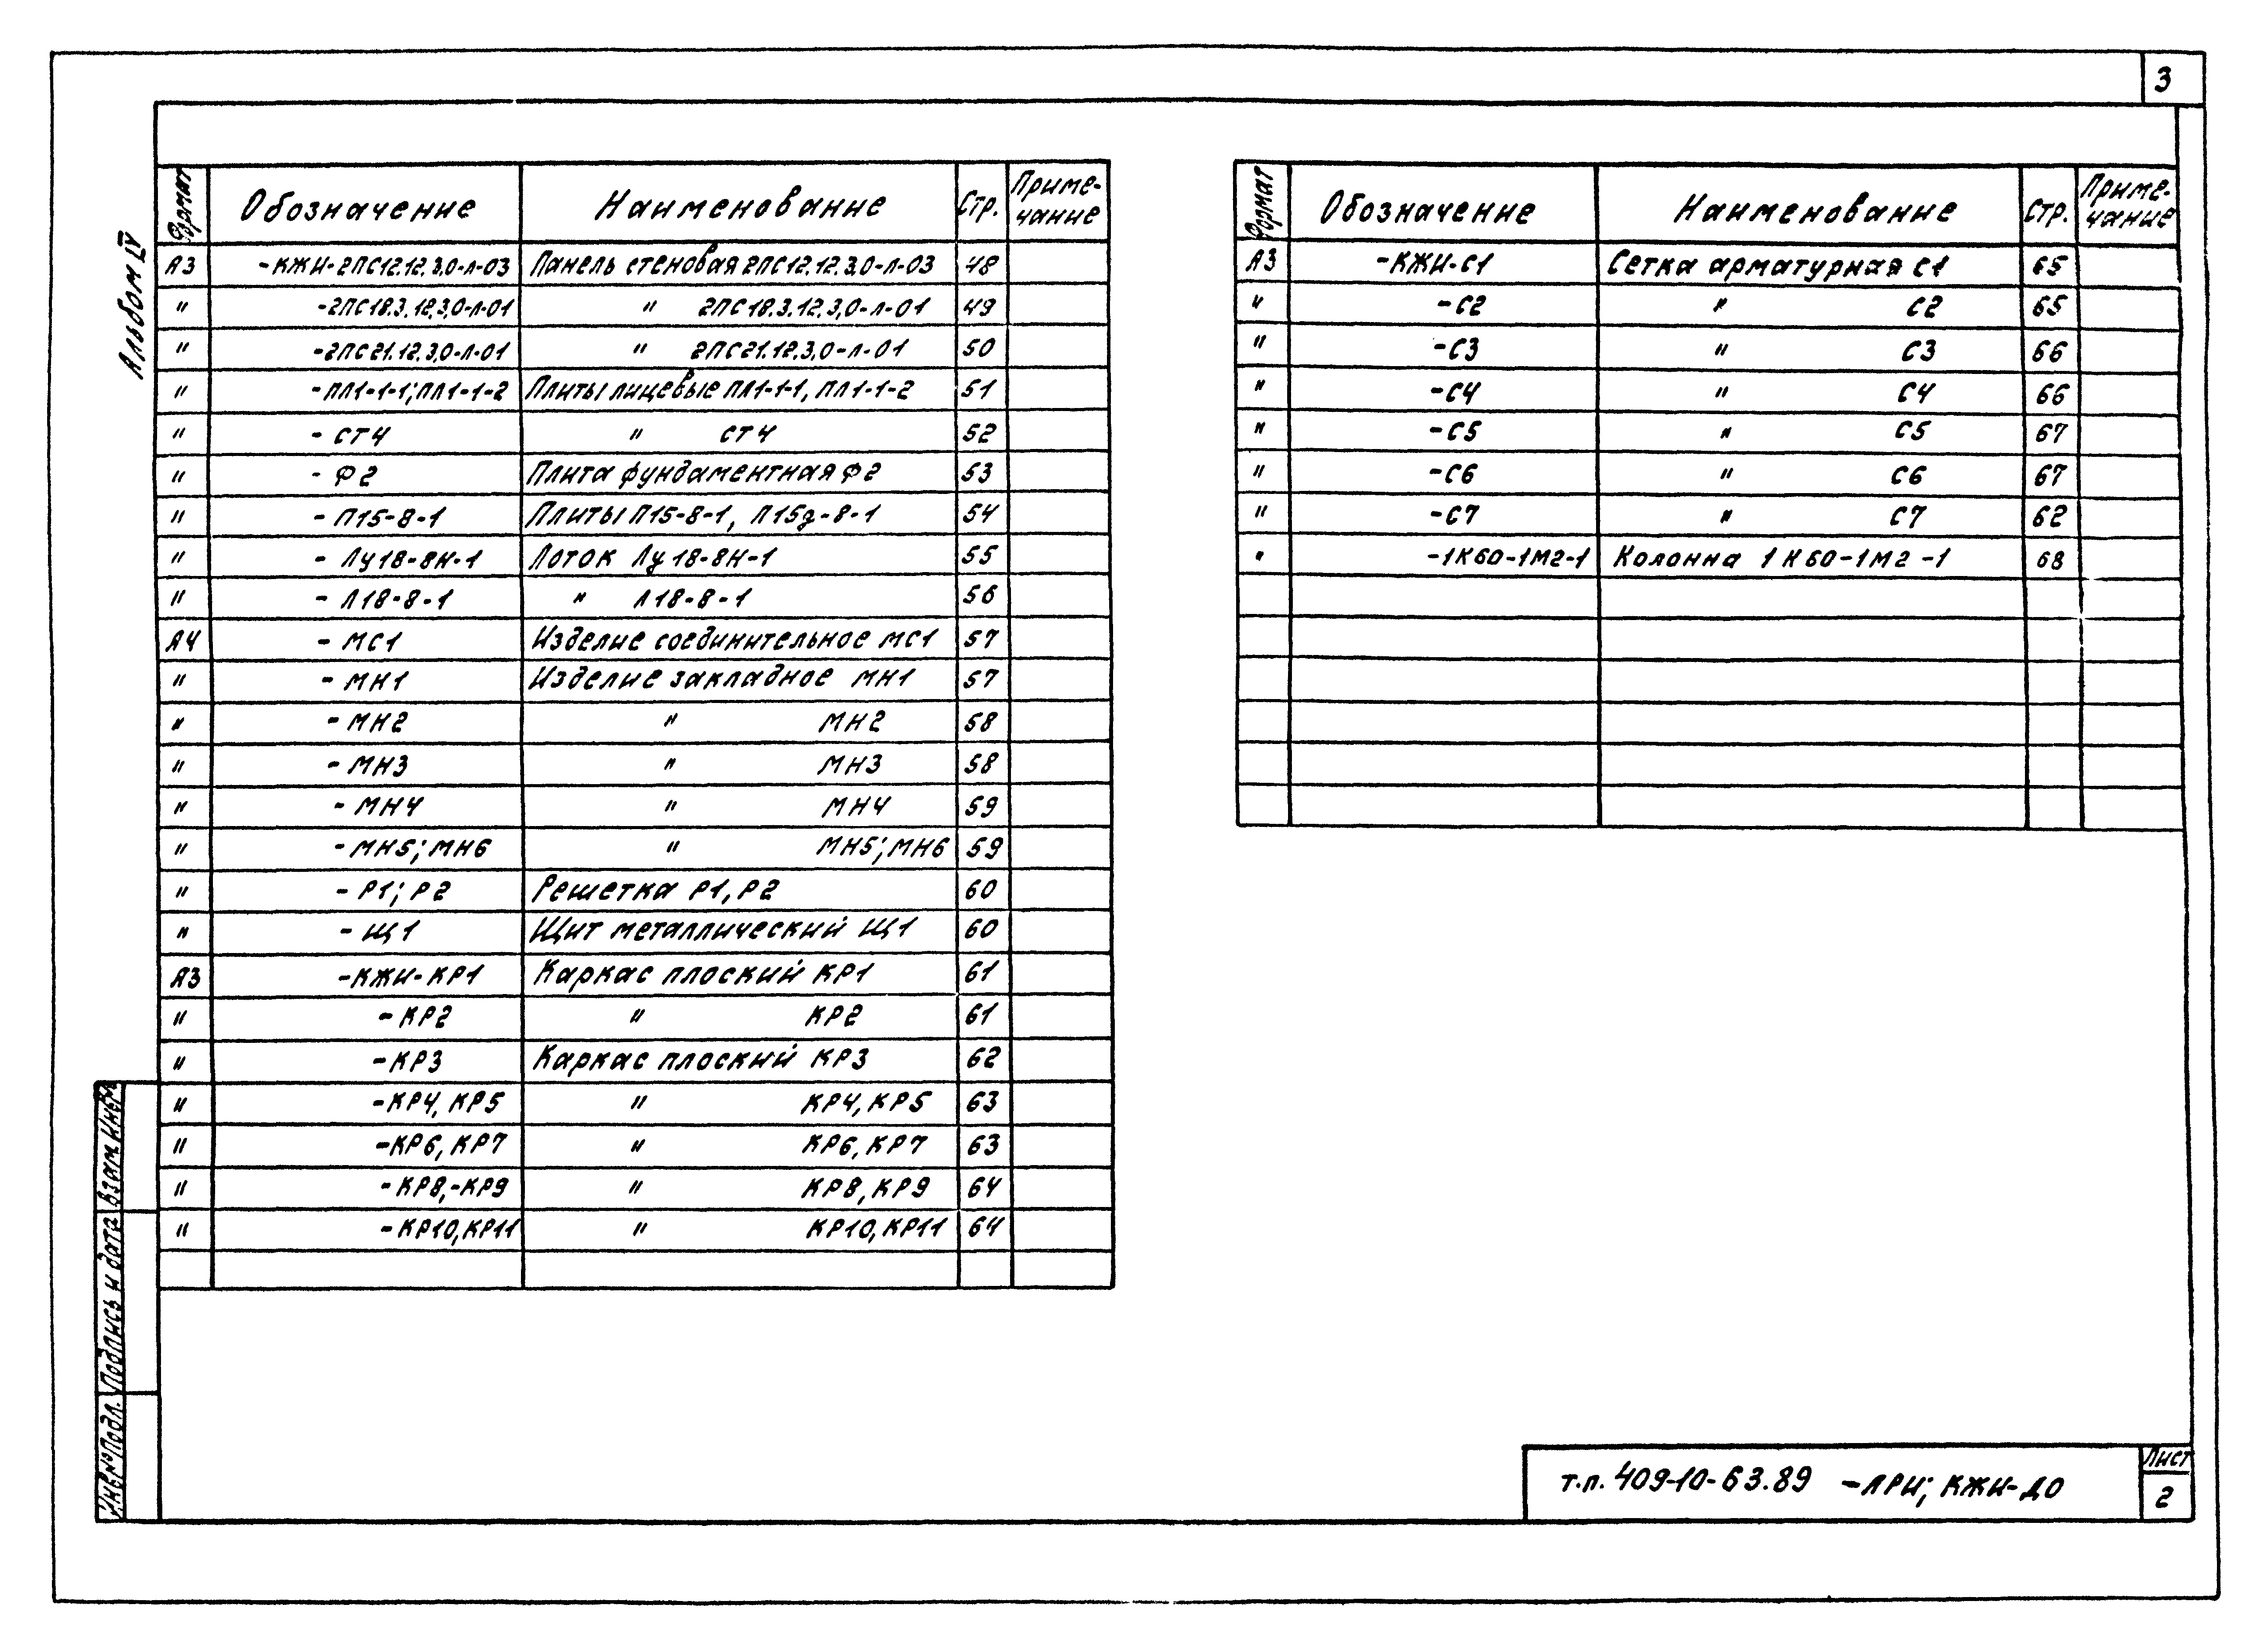 3
Альбом IV
Формат Обозначение Наименование Стр. Приме-чание
А3 -КЖИ-2ПС12.12.3,0-Л-03 Панель стеновая 2ПС12.12.3,0-Л-03 48
" -2ПС18.3.12.3,0-Л-01 " 2ПС18.3.12.3,0-Л-01 49
" -2ПС21.12.3,0-Л-01 " 2ПС21.12.3,0-Л-01 50
" -ПЛ1-1-1; ПЛ1-1-2 Плиты лицевые ПЛ1-1-1, ПЛ1-1-2 51
" - СТ4 " СТ4 52
" - Ф2 Плита фундаментная Ф2 53
" - П15-8-1 Плиты П15-8-1, П15д-8-1 54
" - Лу18-8Н-1 Лоток Лу18-8Н-1 55
" - Л18-8-1 " Л18-8-1 56
А4 - МС1 Изделие соединительное МС1 57
" - МН1 Изделие закладное МН1 57
" - МН2 " МН2 58
" - МН3 " МН3 58
" - МН4 " МН4 59
" - МН5; МН6 " МН5; МН6 59
" - Р1; Р2 Решетка Р1, Р2 60
" - Щ1 Щит металлический Щ1 60
А3 -КЖИ-КР1 Каркас плоский КР1 61
" - КР2 " КР2 61
" -КР3 Каркас плоский КР3 62
" -КР4, КР5 " КР4, КР5 63
" -КР6, КР7 " КР6, КР7 63
" -КР8,-КР9 " КР8, КР9 64
" -КР10, КР11 " КР10, КР11 64
Формат Обозначение Наименование Стр. Приме-чание
А3 -КЖИ-С1 Сетка арматурная С1 65
" -С2 " С2 65
" -С3 " С3 66
" -С4 " С4 66
" -С5 " С5 67
" -С6 " С6 67
" -С7 " С7 62
" -1К60-1М2-1 Колонна 1К60-1М2-1 68
Взам Инв№
Подпись и дата
Инв№Подл.
т.п. 409-10-63.89 -АРИ; КЖИ-ДО
Лист
2